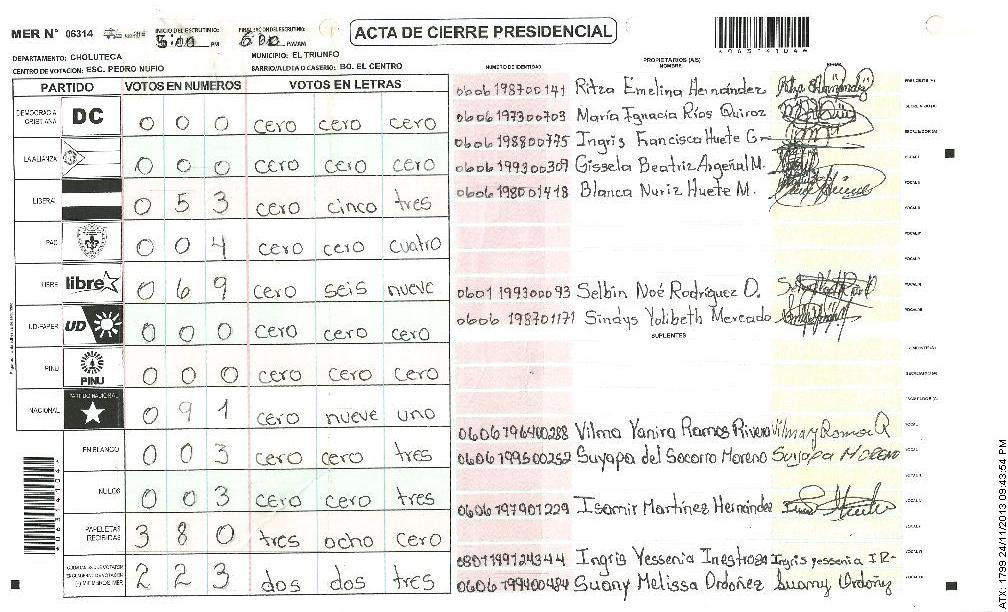 MER N° 06314
INICIO DEL ESCRUTINIO: 5:00 PM
FINALIZACION DEL ESCRUTINIO: 6:00 PM/AM
ACTA DE CIERRE PRESIDENCIAL
DEPARTAMENTO: CHOLUTECA
MUNICIPIO: EL TRIUNFO
CENTRO DE VOTACION: ESC. PEDRO NUFIO
BARRIO/ALDEA O CASERIO: BO. EL CENTRO
PARTIDO VOTOS EN NUMEROS VOTOS EN LETRAS
DEMOCRACIA CRISTIANA DC 0 0 0 cero cero cero
LA ALIANZA 0 0 0 cero cero cero
LIBERAL 0 5 3 cero cinco tres
PAC 0 0 4 cero cero cuatro
LIBRE libre 0 6 9 cero seis nueve
UD-FAPER UD 0 0 0 cero cero cero
PINU PINU 0 0 0 cero cero cero
NACIONAL PARTIDO NACIONAL 0 9 1 cero nueve uno
EN BLANCO 0 0 3 cero cero tres
NULOS 0 0 3 cero cero tres
PAPELETAS RECIBIDAS 3 8 0 tres ocho cero
2 2 3 dos dos tres
NUMERO DE IDENTIDAD PROPIETARIOS (AS) NOMBRE FIRMA
0606 198700141 Ritza Emelina Hernández
0606 197300703 María Ignacia Ríos Quiroz
0606 198800775 Ingris Francisca Huete G.
0606 199300309 Gissela Beatriz Argeñal M.
0606 198001418 Blanca Nuriz Huete M.
0601 199300093 Selbin Noé Rodríguez O.
0606 198701171 Sindys Yolibeth Mercado
SUPLENTES
0606 196400288 Vilma Yanira Ramos Rivera
0606 199500252 Suyapa del Socorro Moreno Suyapa Moreno
0606 197901229 Isamir Martínez Hernández
0801 199124344 Ingris Yessenia Inestroza Ingris yessenia IR-
0606 199400484 Suany Melissa Ordoñez Suany Ordoñz
ATX: 1799 24/11/2013 09:43:54 PM